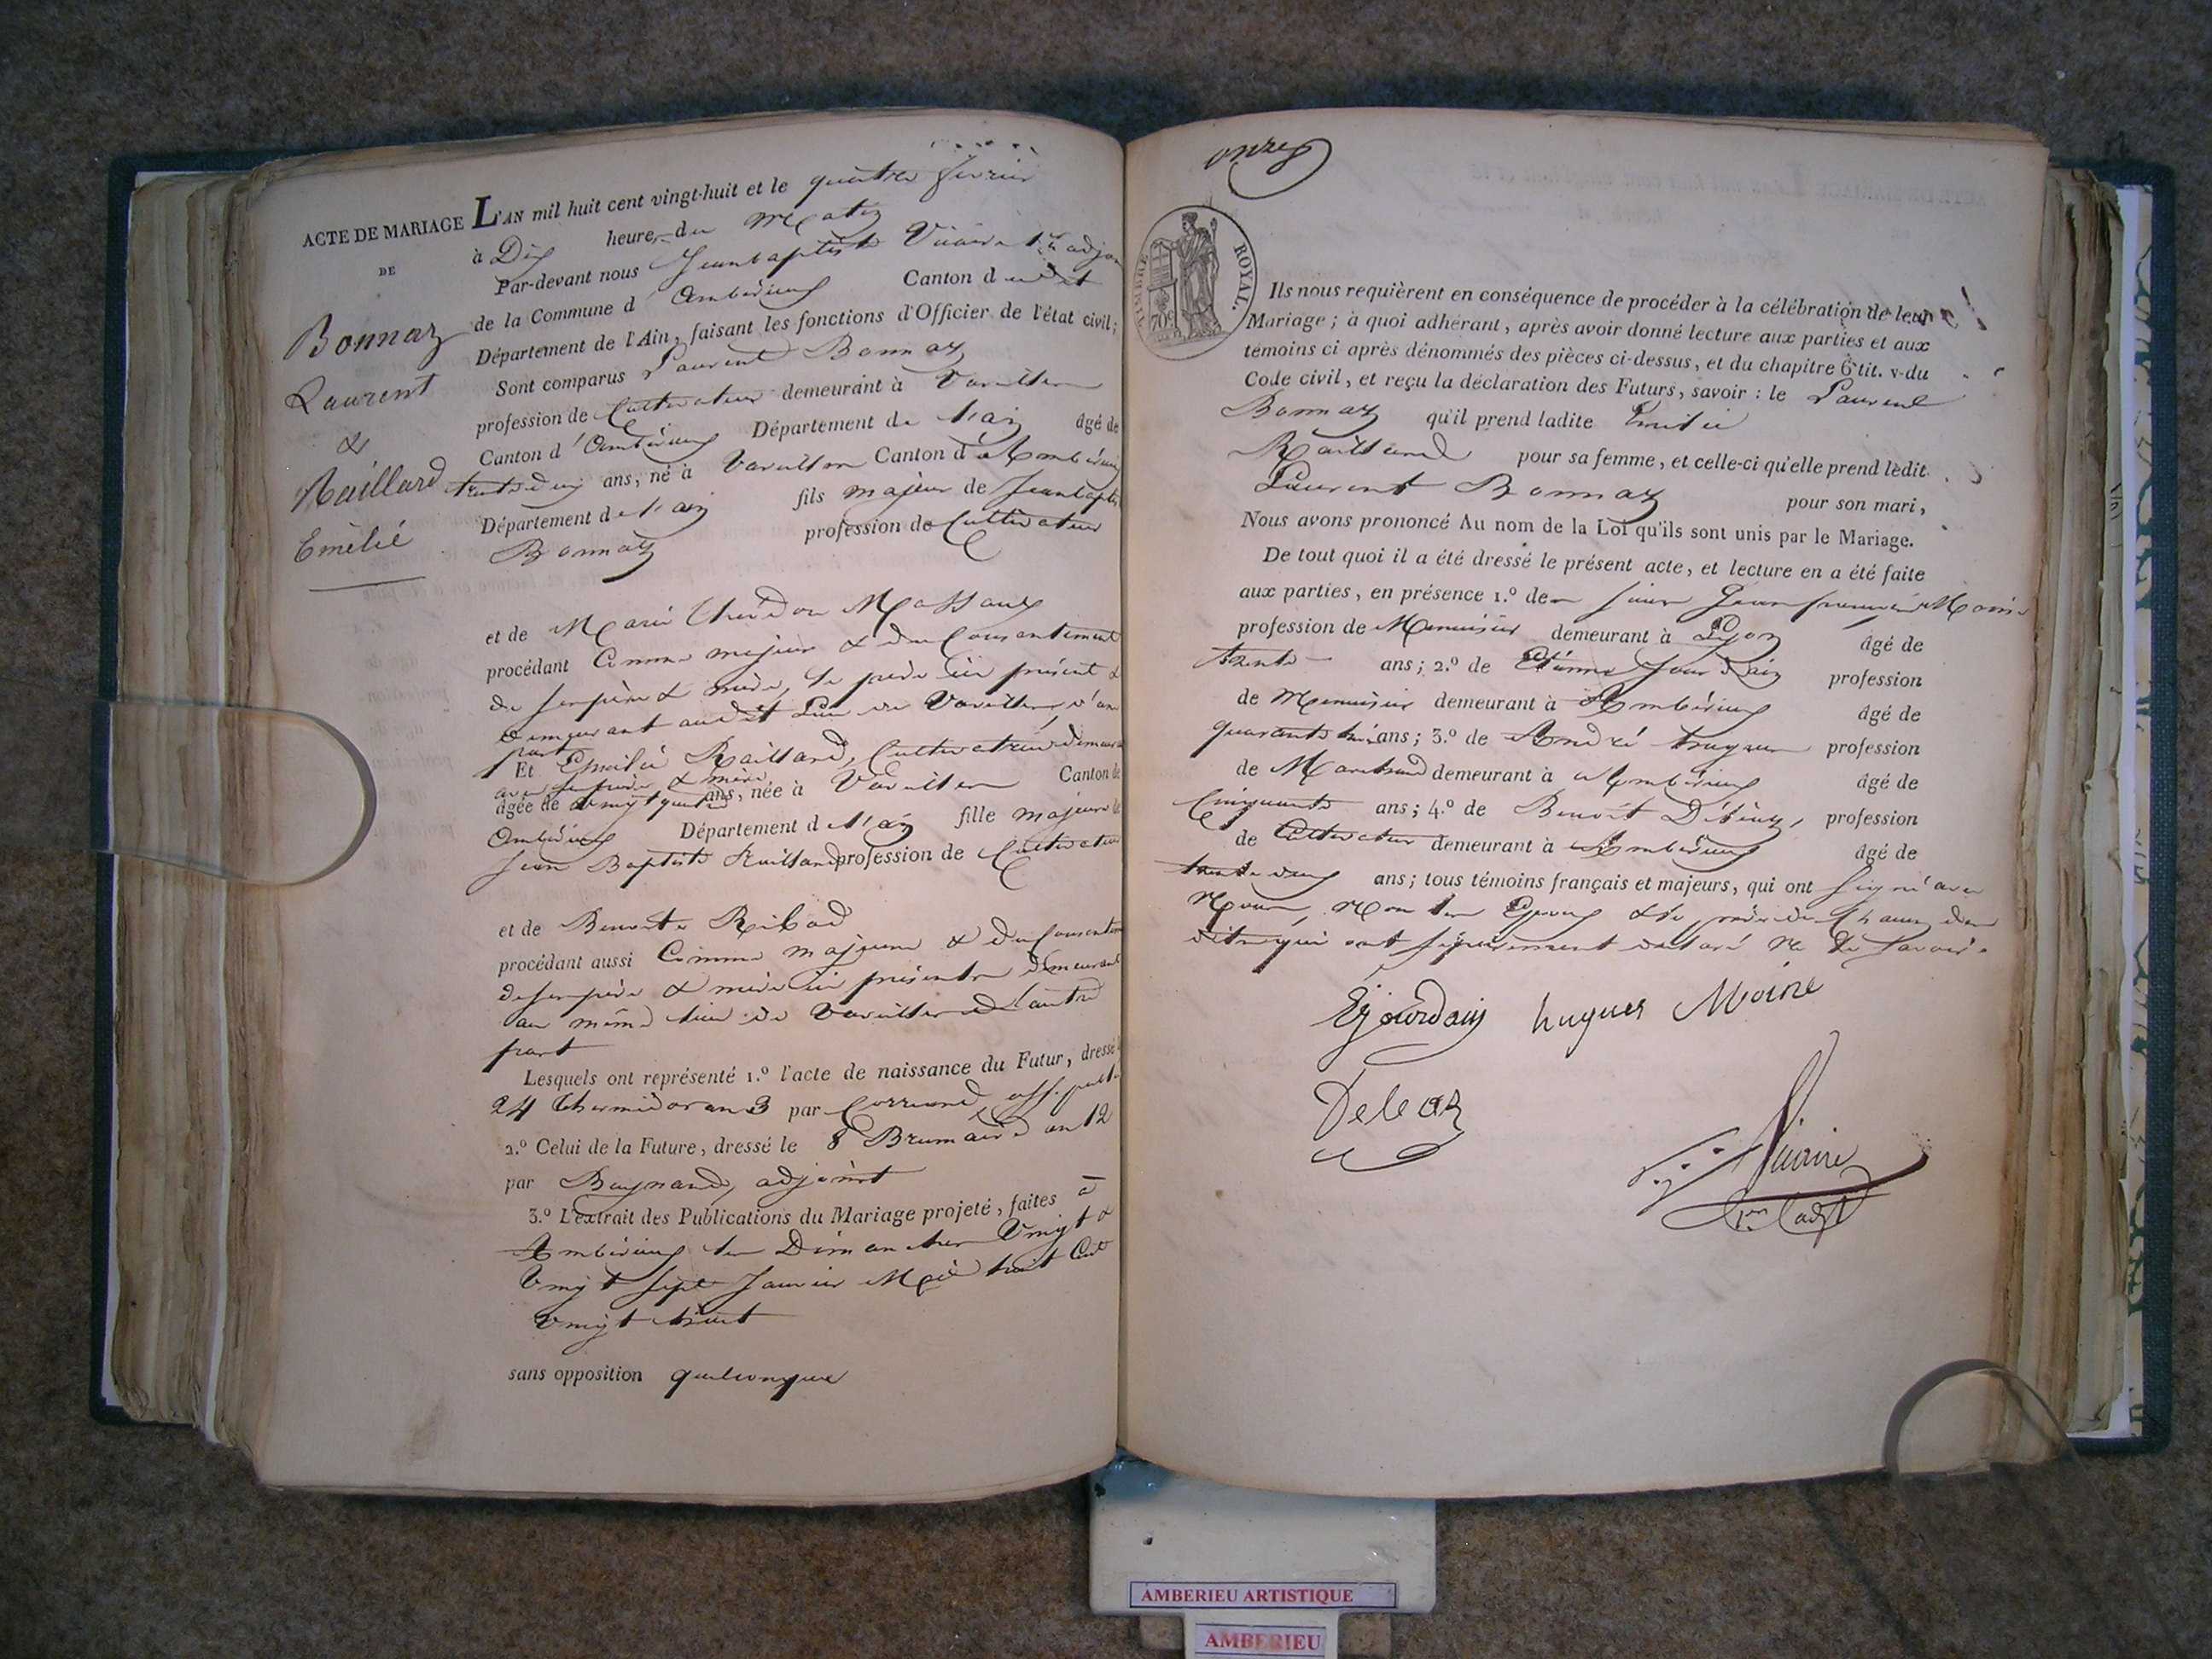 ACTE DE MARIAGE
DE
Bonnaz
Laurent
&
Raillard
Emélié
L'AN mil huit cent vingt-huit et le quatre février
à Dix heures du Matin
Par-devant nous Jeanbaptiste 1er adjoint
de la Commune d'Ambérieux Canton dudit
Département de l'Ain, faisant les fonctions d'Officier de l'état civil;
Sont comparus Laurent Bonnaz
profession de Cultivateur demeurant à Vareilles
Canton d'Ambérieux Département de l'ain âgé de
trente deux ans, né à Vareilles Canton d'Ambérieux
Département de l'ain fils majeur de Jeanbaptiste
Bonnaz profession de Cultivateur
et de Marie
procédant Comme majeur & du Consentement
de ses père & mère, le père ici présent &
demeurant audit Lieu de Vareilles, d'une
part
Et Emélié Raillard, Cultivatrice demeurant
avec ses père & mère
âgée de vingt quatre ans, née à Vareilles Canton de
Ambérieux Département de l'ain fille majeure de
Jean Baptiste Raillard profession de Cultivateur
et de Benoite
procédant aussi Comme majeure & du Consentement
de ses père & mère ici présents demeurant
au même lieu de Vareilles de l'autre
part
Lesquels ont représenté 1.º l'acte de naissance du Futur, dressé le
24 thermidor an 3 par off. public
2.º Celui de la Future, dressé le 8 Brumaire an 12
par adjoint
3.º L'extrait des Publications du Mariage projeté, faites à
Ambérieux les Dimanches Vingt &
Vingt sept Janvier Mil huit Cent
Vingt huit
sans opposition quelconque
onze
TIMBRE ROYAL.
70c
Ils nous requièrent en conséquence de procéder à la célébration de leur
Mariage; à quoi adhérant, après avoir donné lecture aux parties et aux
témoins ci après dénommés des pièces ci-dessus, et du chapitre 6 tit. v du
Code civil, et reçu la déclaration des Futurs, savoir : le Laurent
Bonnaz qu'il prend ladite Emélié
Raillard pour sa femme, et celle-ci qu'elle prend ledit
Laurent Bonnaz pour son mari,
Nous avons prononcé Au nom de la Loi qu'ils sont unis par le Mariage.
De tout quoi il a été dressé le présent acte, et lecture en a été faite
aux parties, en présence 1.º de Moine
profession de Menuisier demeurant à Lyon âgé de
trente ans; 2.º de Etienne Jourdain profession
de Menuisier demeurant à Ambérieux âgé de
quarante ans; 3.º de André profession
de Marchand demeurant à Ambérieux âgé de
Cinquante ans; 4.º de Benoit profession
de Cultivateur demeurant à Ambérieux âgé de
trente deux ans; tous témoins français et majeurs, qui ont signé avec
Nous, Non les Epoux
qui ont séparément déclaré ne le savoir.
Ejourdain hugues Moine
AMBERIEU ARTISTIQUE
AMBERIEU